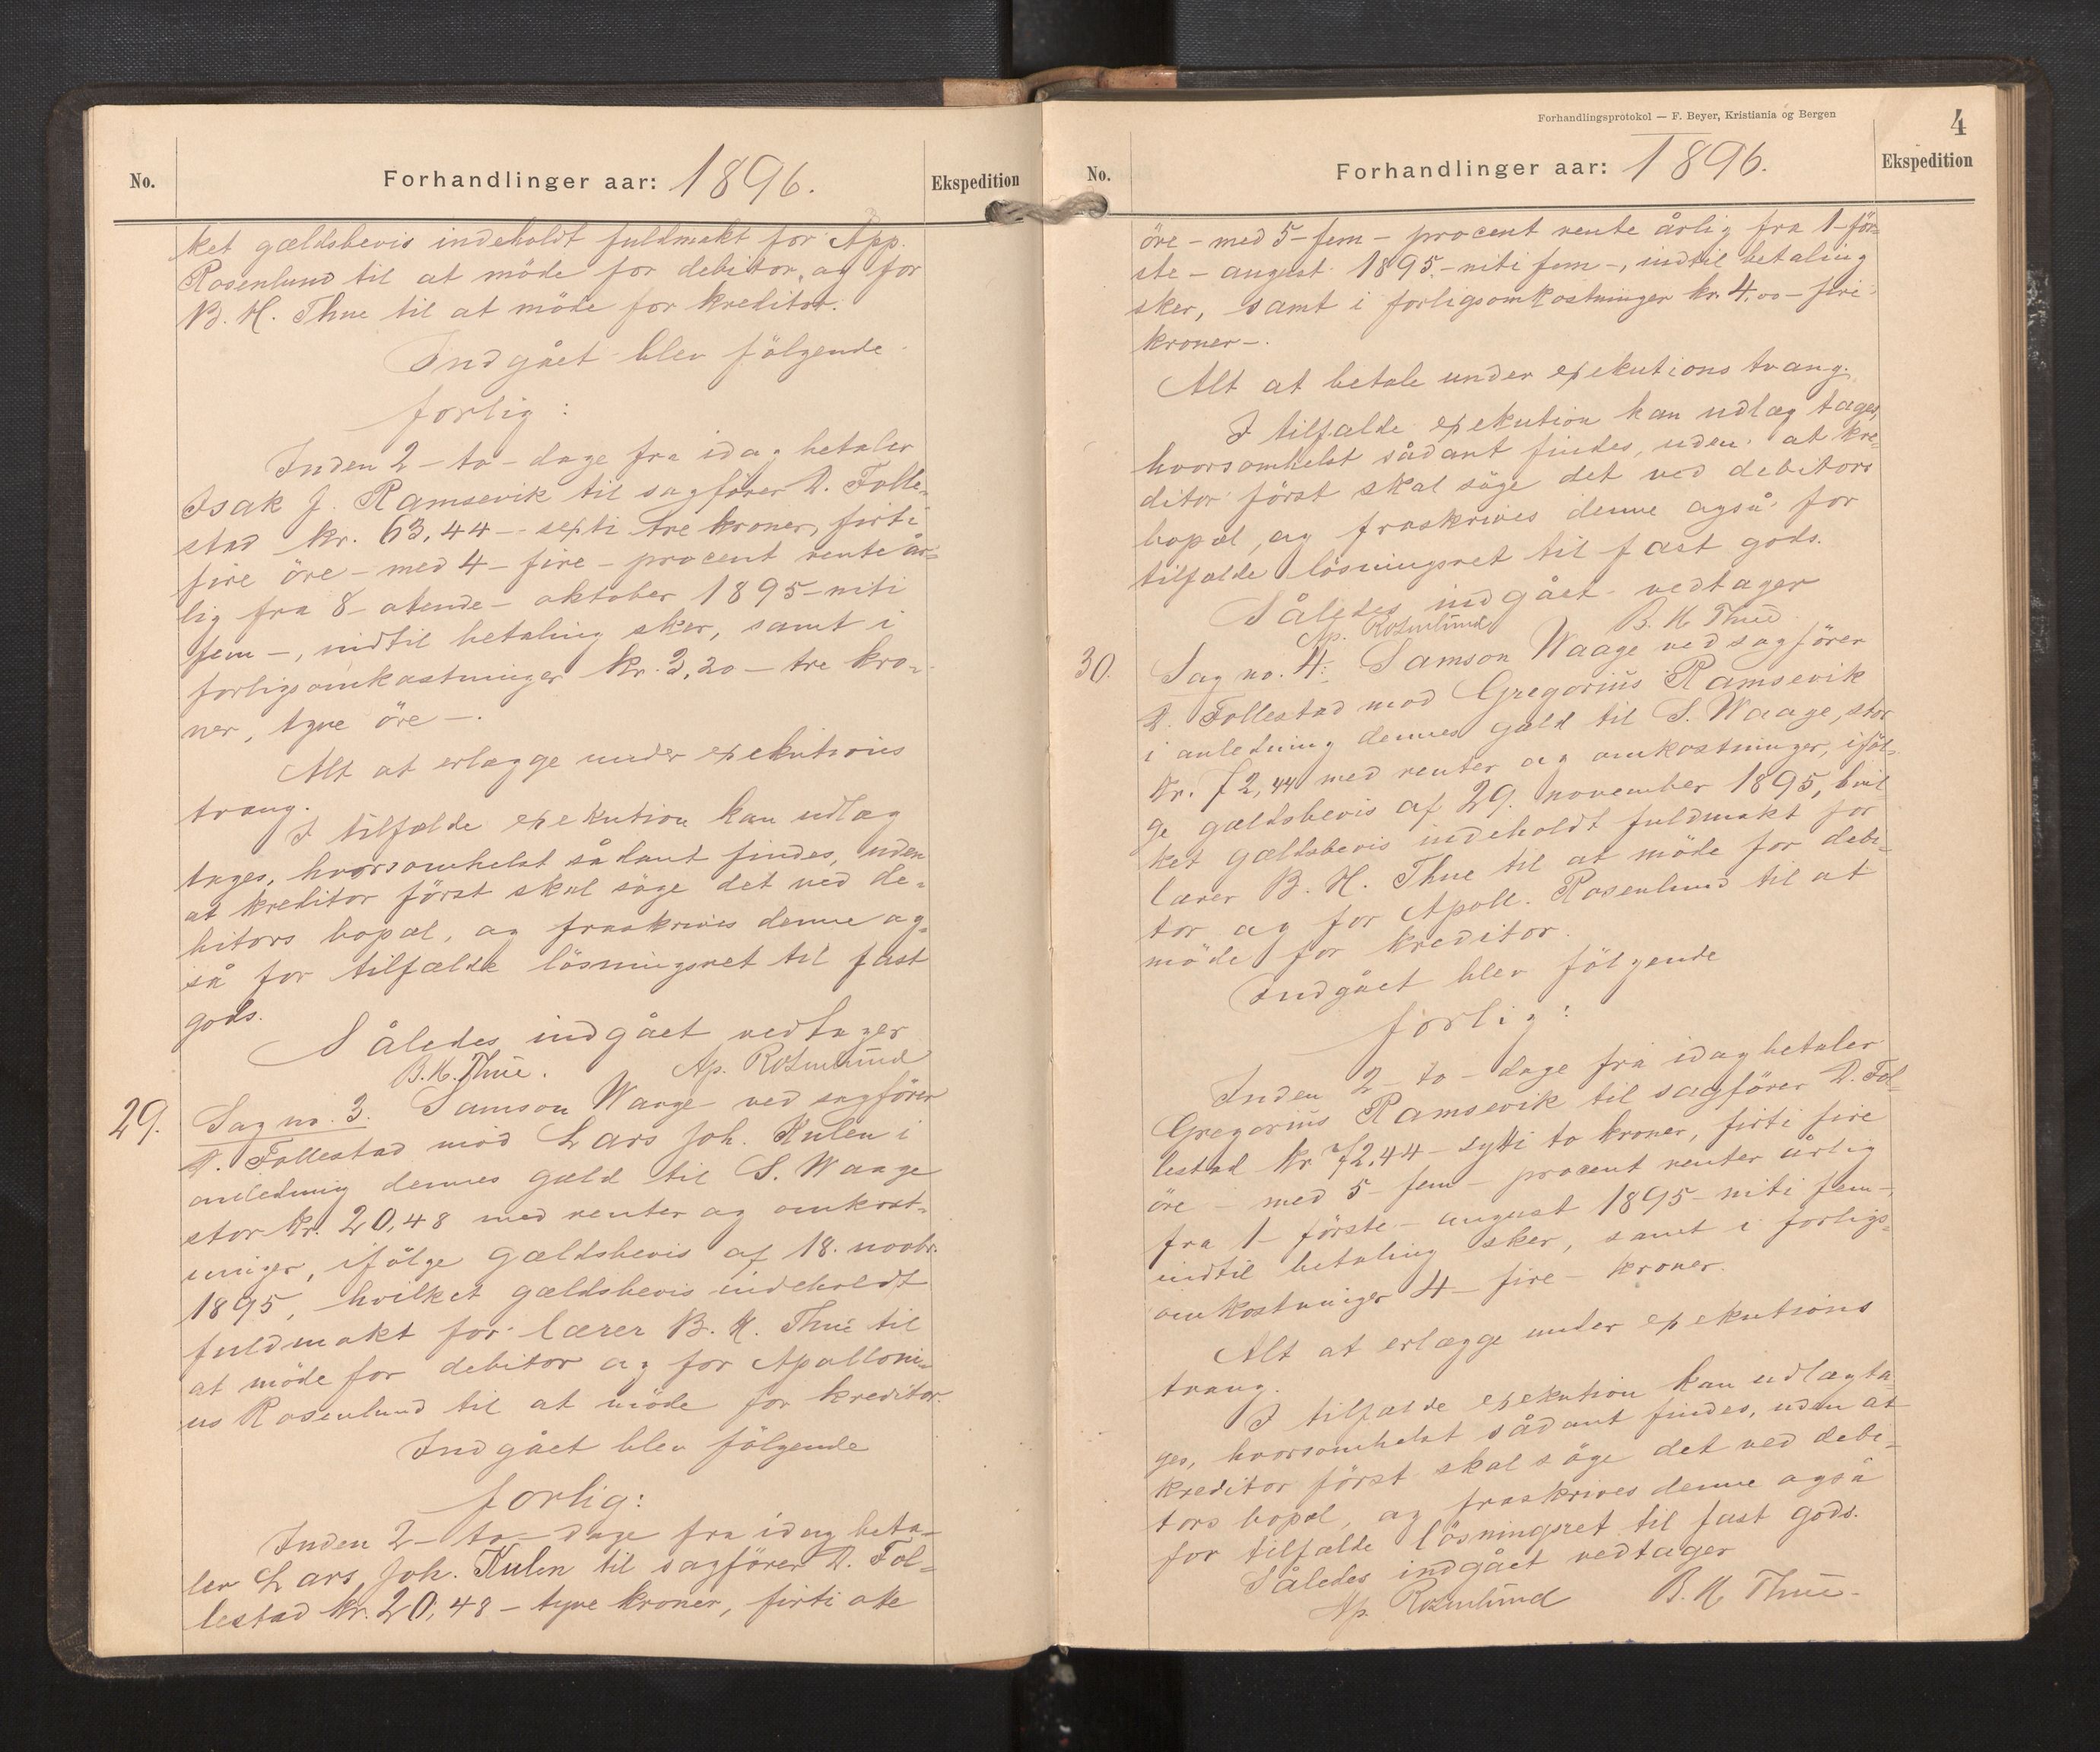 No.
Forhandlinger aar: 1896.
Ekspedition
ket gældsbevis indeholdt fuldmakt for App.
Rosenlund til at möde for debitor, og for
B. H. Thue til at möde for kreditor.
Indgået blev fölgende
forlig:
Inden 2 - to - dage fra idag betaler
Isak J. Ramsevik til sagförer D. Folle-
stad kr. 63,44 - sexti tre kroner, firti
fire öre - med 4 - fire - procent rente år-
lig fra 8 - attende - oktober 1895 - niti
fem -, indtil betaling sker, samt i
forligsomkostninger kr. 3,20 - tre kro-
ner, tyve öre -.
Alt at erlægge under exekutions
tvang.
I tilfælde exekution kan udlæg
tages, hvorsomhelst sådant findes, uden
at kreditor först skal söge det ved de-
bitors bopæl, og fraskrives denne og-
så for tilfælde lösningsret til fast
gods.
Således indgået vedtager
B. H. Thue. Ap. Rosenlund
29. Sag no. 3. Samson Waage ved sagförer
D. Follestad mod Lars Joh. Kulen i
anledning dennes gæld til S. Waage
stor kr. 20,48 med renter og omkost-
ninger, ifölge gældsbevis af 18. novbr.
1895, hvilket gældsbevis indeholdt
fuldmakt for lærer B. H. Thue til
at möde for debitor og for Apolloni-
us Rosenlund til at möde for kreditor.
Indgået blev fölgende
forlig:
Inden 2 - to - dage fra idag beta-
ler Lars Joh. Kulen til sagförer D. Fol-
lestad kr. 20,48 - tyve kroner, firti otte
Forhandlingsprotokol — F. Beyer, Kristiania og Bergen
4
No.
Forhandlinger aar: 1896.
Ekspedition
öre - med 5 - fem - procent rente årlig fra 1 - för-
ste - august 1895 - niti fem -, indtil betaling
sker, samt i forligsomkostninger kr. 4,00 - fire
kroner -.
Alt at betale under exekutions tvang.
I tilfælde exekution kan udlæg tages,
hvorsomhelst sådant findes, uden at kre-
ditor först skal söge det ved debitors
bopæl, og fraskrives denne også for
tilfælde lösningsret til fast gods.
Således indgået vedtager
Ap. Rosenlund B. H. Thue
30. Sag no. 4. Samson Waage ved sagförer
D. Follestad mod Gregorius Ramsevik
i anledning dennes gæld til S. Waage, stor
kr. 72,44 med renter og omkostninger, iföl-
ge gældsbevis af 29. november 1895, hvil
ket gældsbevis indeholdt fuldmakt for
lærer B. H. Thue til at möde for debi-
tor og for Apoll. Rosenlund til at
möde for kreditor.
Indgået blev fölgende
forlig:
Inden 2 - to - dage fra idag betaler
Gregorius Ramsevik til sagförer D. Fol-
lestad kr 72,44 - sytti to kroner, firti fire
öre - med 5 - fem - procent renter årlig
fra 1 - förste - august 1895 - niti fem -,
indtil betaling sker, samt i forligs-
omkostninger 4 - fire - kroner.
Alt at erlægge under exekutions
tvang.
I tilfælde exekution kan udlæg ta-
ges, hvorsomhelst sådant findes, uden at
kreditor först skal söge det ved debi-
tors bopæl, og fraskrives denne også
for tilfælde lösningsret til fast gods.
Således indgået vedtager
Ap. Rosenlund B. H. Thue